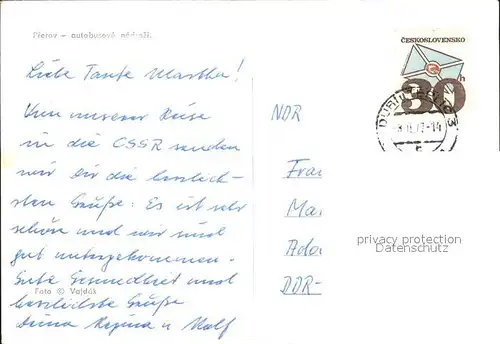 Přerov - autobusové nádraží.
Liebe Tante Martha!
Von unserer Reise
in die CSSR senden
wir Dir die herzlich-
sten Grüße. Es ist sehr
schön und wir sind
gut untergekommen.
Gute Gesundheit und
Foto © Vajdák
herzlichste Grüße
Deine Regina u Ralf
ČESKOSLOVENSKO
30h
NDR
Frau
Ma
Ado
DDR-
privacy protection
Datenschutz